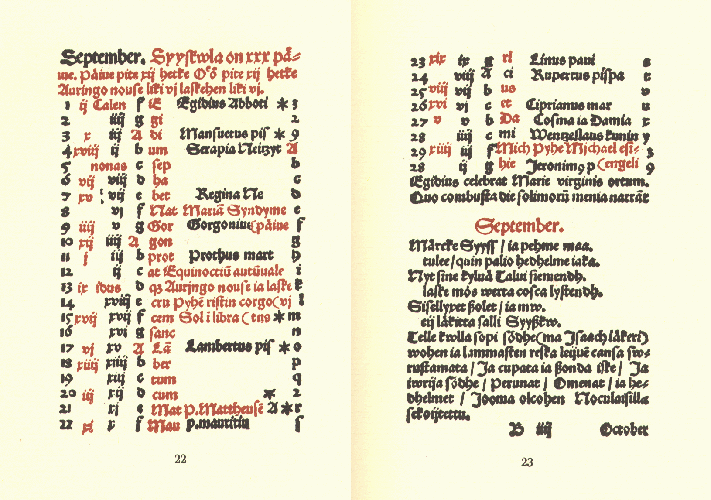 September. Syyskwla on xxx päi=
ue. Päiue pite xij hetke Öö pite xij hetke
Auringo nouse liki vj laskehen liki vj.
1 ij Calen f iE Egidius Abboti
2 iiij g gi 2
3 x iij A di Mansuetus pis 9
4 xviij ij b um Serapia Neitzyt A
5 nonas c sep b
6 vij viij d ha c
7 xv vij e bet Regina Ne d
8 vj f Nat Mariä Syndyme e
9 iiij v g Gor Gorgonius (päiue f
10 xij iiij A gon g
11 j iij b prot Prothus mart h
12 ij c at iEquinoctiü autüuale i
13 ix idus d qz Auringo nouse ia laske k
14 xviij e cru Pyhe ristin corgo (vj l
15 xvij xvij f cem Sol i libra m
16 xvj g sanc n
17 vj xv A Lä Lambertus pis o
18 xiiij xiiij b ber p
19 xiij c tum q
20 iij xij d cum 2
21 xj e Mat P. Mattheuse A r
22 xj x f Mau p. mauritiu s
22
23 xix ix g ri Linus paui
24 viij A ci Rupertus pispa
25 viij vij b us v
26 xvj vj c et Ciprianus mar u
27 v v D Da Cosma ia Damia x
28 iiij c mi Wentzeslaus kunin y
29 xiij iij f Mich Pyhe Michael esi=
28 ij g hie Jeronimg p (engeli 9
Egidius celebrat Marie virginis ortum.
Quo combusta die solimorü menia narrät
September.
Märcke Syyss / ia pehme maa.
tulee / quin palio hedhelme iaka.
Nyt sine kyluä Talui siemendh.
laske mös werta cosca lystendh.
Sisellyxet ßolet / ia mw.
eij läkitta salli Syyßkw.
Telle kwlla sopi södhe (ma Jsaach läkeri)
wohen ia lammasten reska leiuue cansa
rustamata / Ja cupata ia ßonda iske / Ja
iwrija södhe / Perunat / Omenat / ia he=
dhelmet / Jooma olcohen Noculaisilla
sekoijtettu.
B iiij October
23